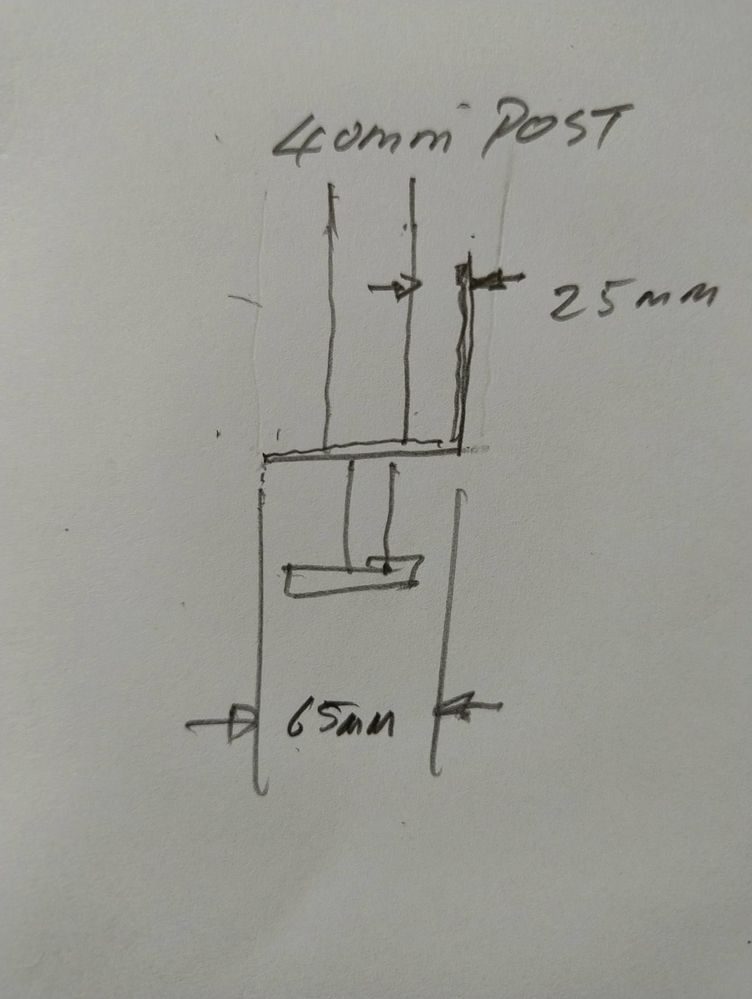 40mm POST
25mm
65mm